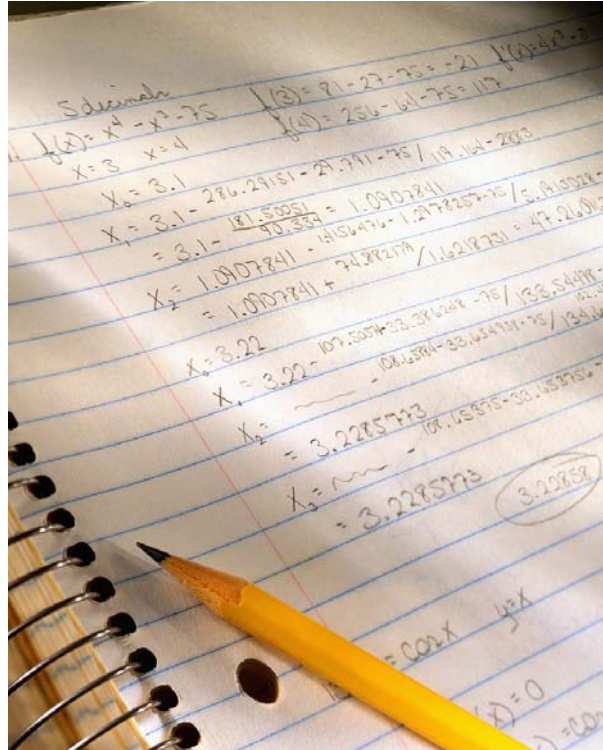 5 decimals
f(x) = x⁴ - x³ - 75 f(3) = 81 - 27 - 75 = -21 f'(x) = 4x³ - 3
x = 3 x = 4 f(4) = 256 - 64 - 75 = 117
X₀ = 3.1
X₁ = 3.1 - 286.29151 - 29.791 - 75 / 119.164 - 2883
= 3.1 - 181.50051 / 90.334 = 1.0907841
X₂ = 1.0907841 - 1.4156476 - 1.2978257 - 75 / 5.1913028 -
= 1.0907841 + 74.882179 / 1.6218731 = 47.26
X₀ = 3.22
X₁ = 3.22 - 107.5054 - 33.386248 - 75 / 133.54498 -
X₂ = - 108.65884 - 33.654958 - 75 / 134.6
= 3.2285773
X₃ = - 108.65375 - 33.653756 -
= 3.2285773 3.22858
= cos x y = x
(x) = 0
) = co